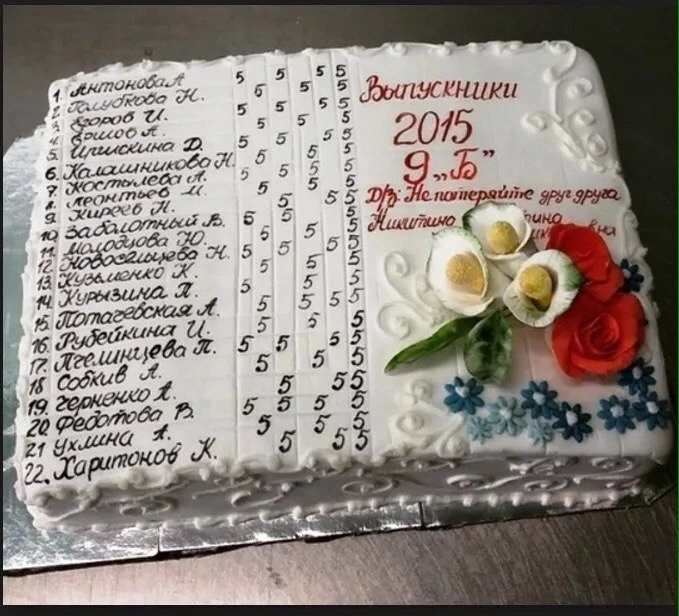 1. Антонова А 5 5 5 5
2. Голубкова Н. 5 5 5
3. Егоров И. 5 5 5 5
4. Ершов А. 5 5 5
5. Д. 5 5 5 5
6. Калашникова Н. 5 5 5
7. Костылева А. 5 5 5
8. Леонтьев М. 5 5 5
9. Киреев Н. 5 5 5
10. Заболотный В. 5 5 5
11. Молодцова Ю. 5 5 5
12. Новосельцева Н. 5 5 5
13. Кузьменко К. 5 5 5
14. Курызина П. 5 5 5
15. Потачевская А. 5 5 5 5
16. Рубейкина И. 5 5 5
17. Пчелинцева П. 5 5 5 5
18 Собкив А. 5 5 5
19. Черненко А. 5 5 5
20. Федотова В. 5 5 5 5
21 Ухлина А. 5 5 5
22. Харитонов К. 5 5 5
Выпускники
2015
9 „Б"
Не потеряйте друг друга